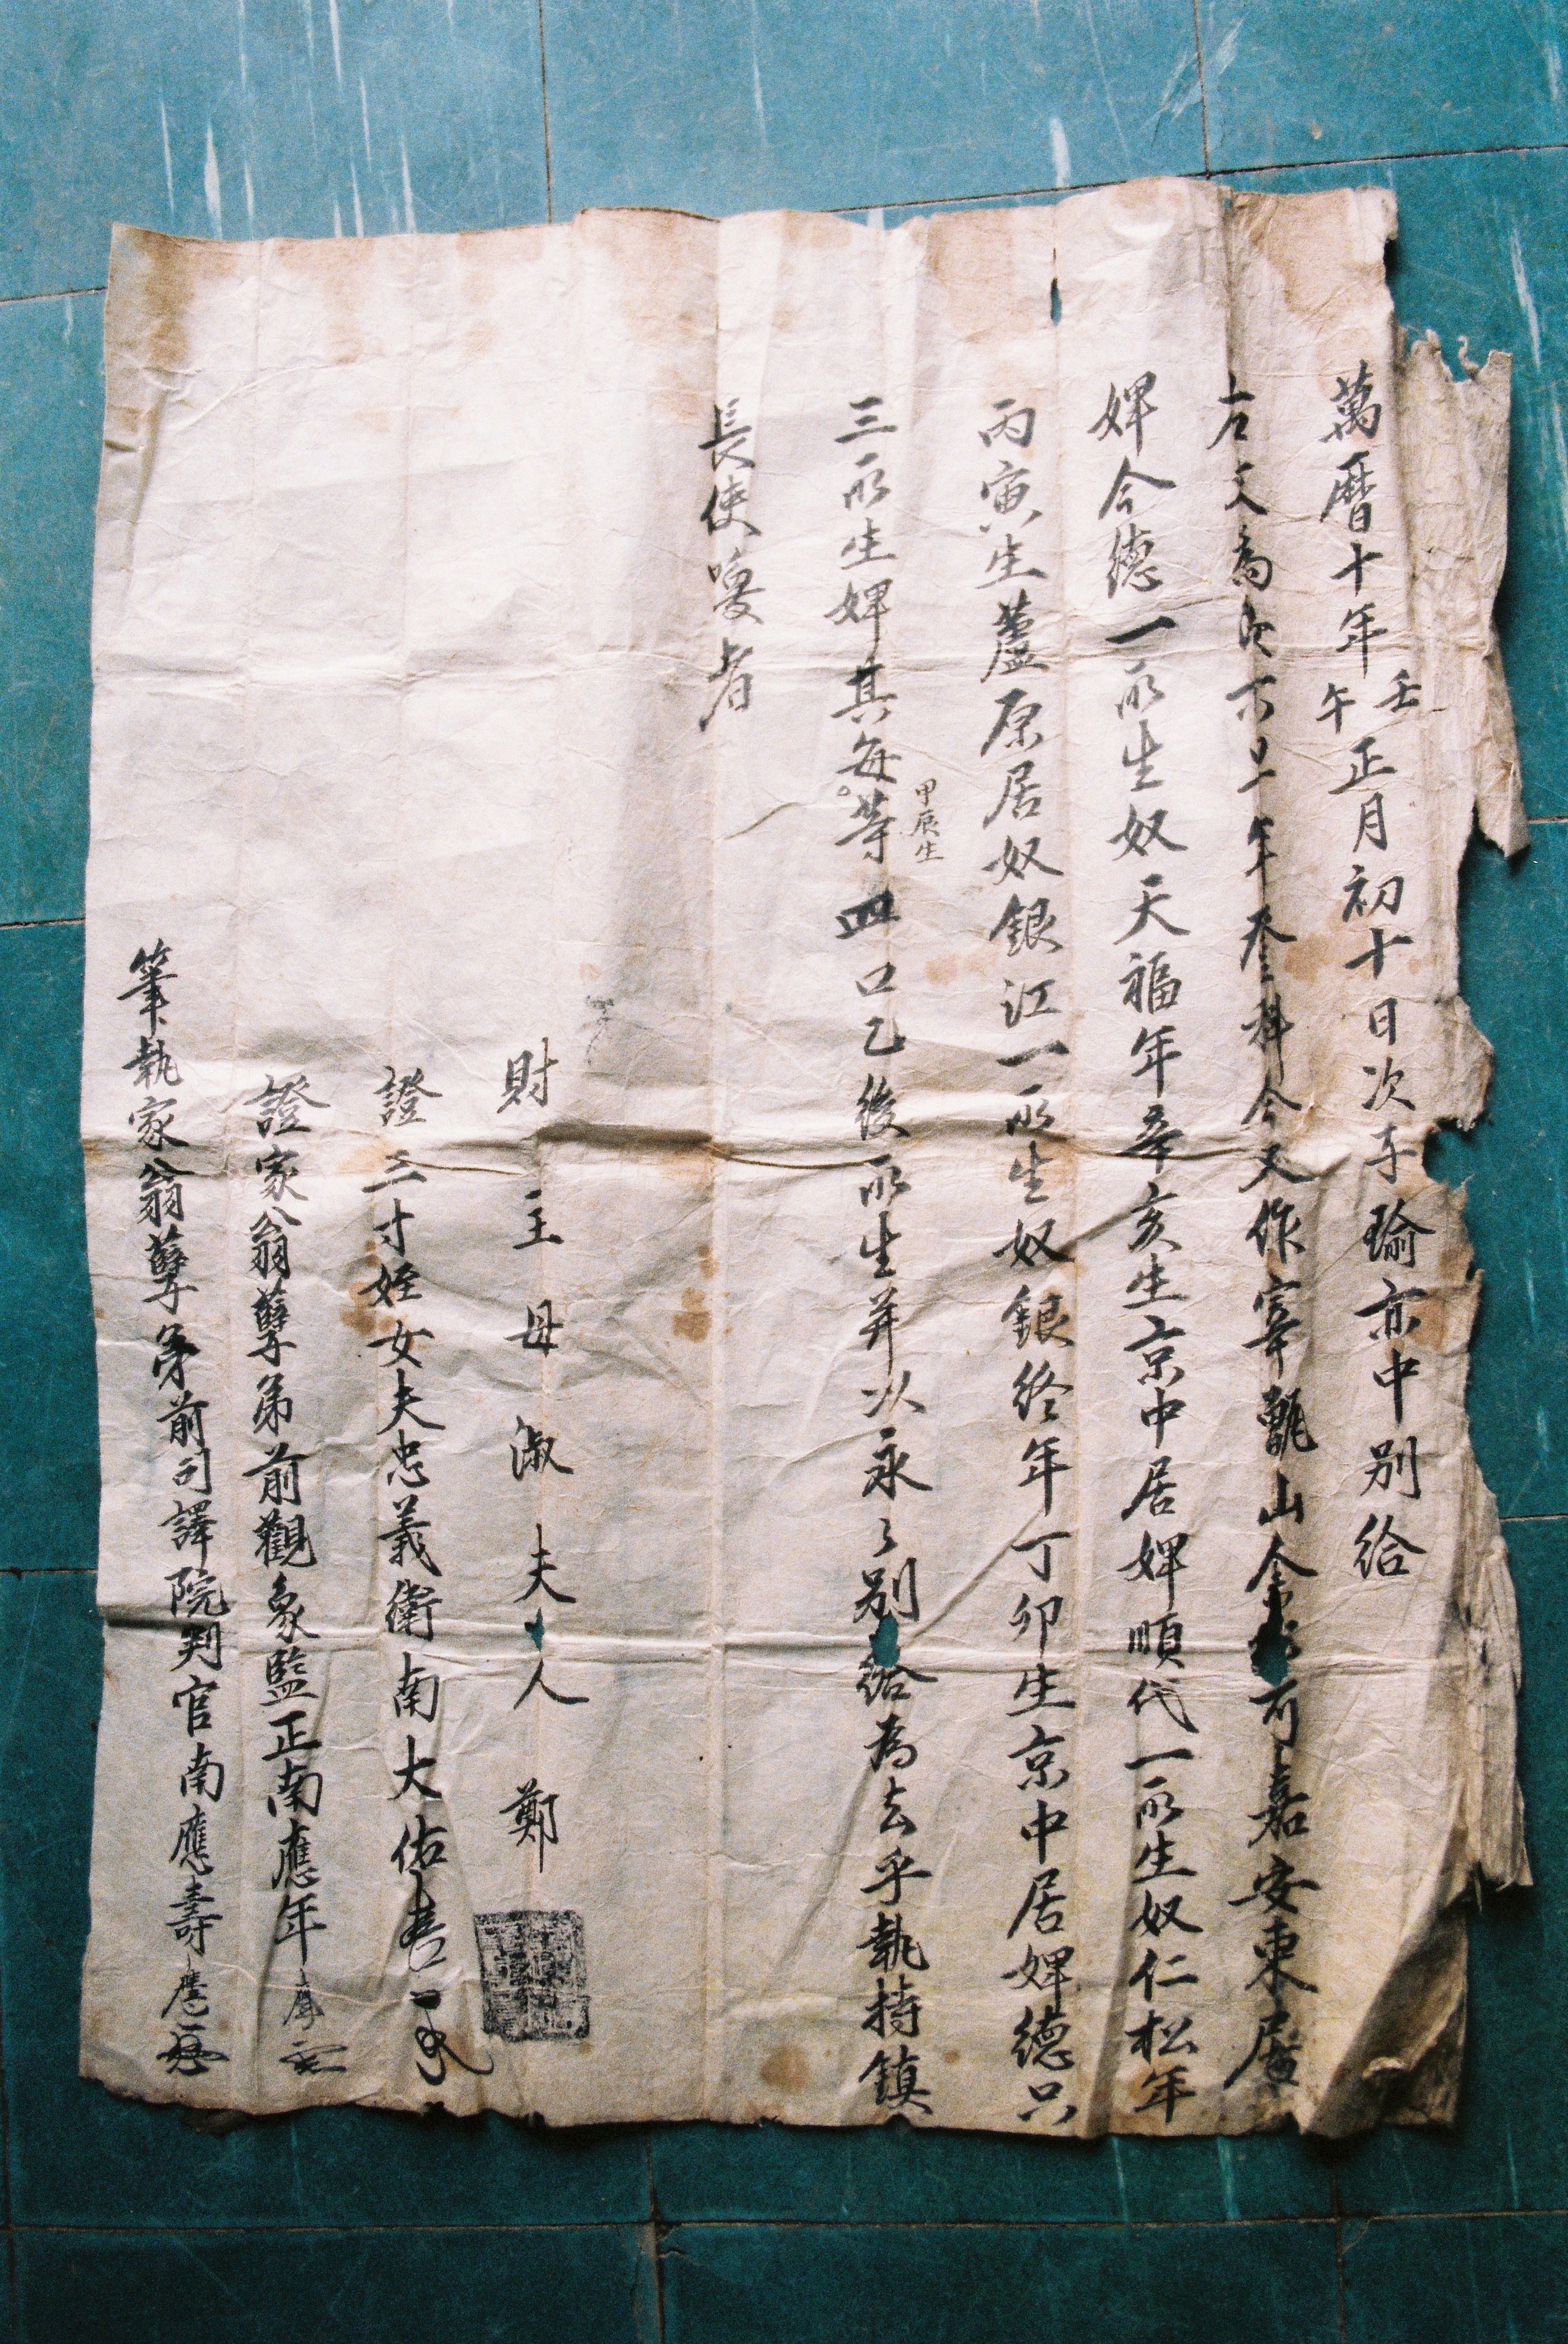 萬曆十年壬午正月初十日次子瑜亦中別給
右文爲汝不早年登科今又作宰甑山金 可嘉安東居
婢今德一所生奴天福年辛亥生京中居婢順代一所生奴仁松年
丙寅生蘆原居奴銀江一所生奴銀終年丁卯生京中居婢德只
三所生婢其每等四口乙後所生幷以永〻別給爲去乎執持鎭
甲辰生
長使喚者
財主母淑夫人鄭
證三寸姪女夫忠義衛南大佑
證家翁孽弟前觀象監正南應年
筆執家翁孽弟前司譯院判官南應壽